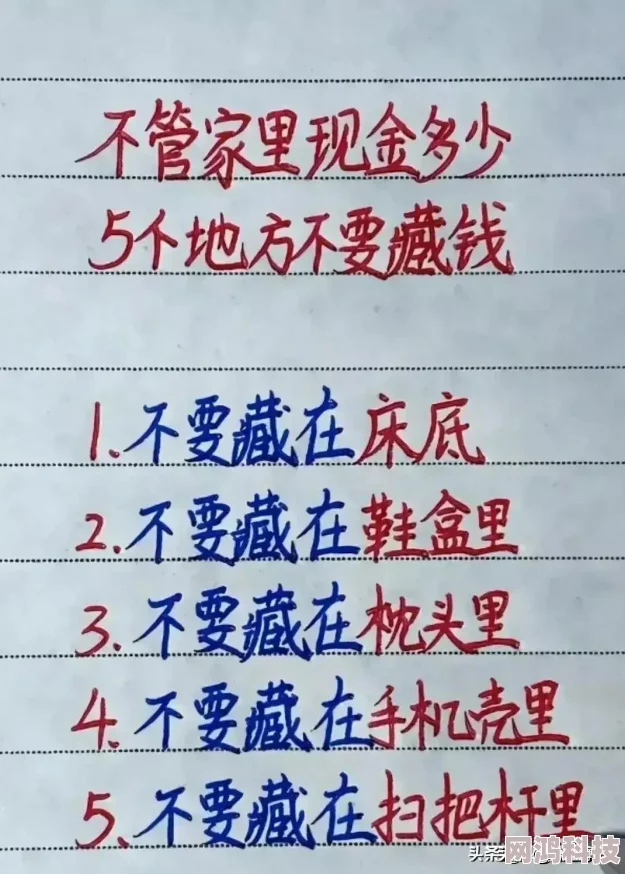 不管家里现金多少
5个地方不要藏钱
1.不要藏在床底
2.不要藏在鞋盒里
3.不要藏在枕头里
4.不要藏在手机壳里
5.不要藏在扫把杆里
头条
网鸿科技